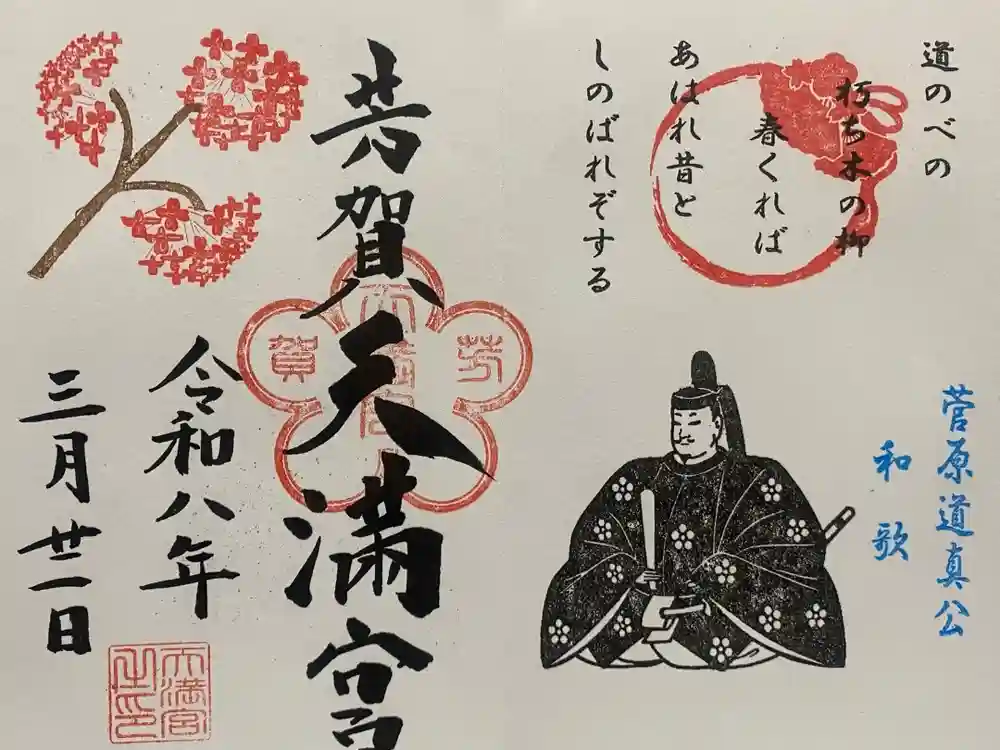 道のべの
朽ち木の柳
春くれば
あはれ昔と
しのばれぞする
菅原道真公
和歌
芳賀天満宮
芳
賀
令和八年
三月廿二日
天満宮
之印